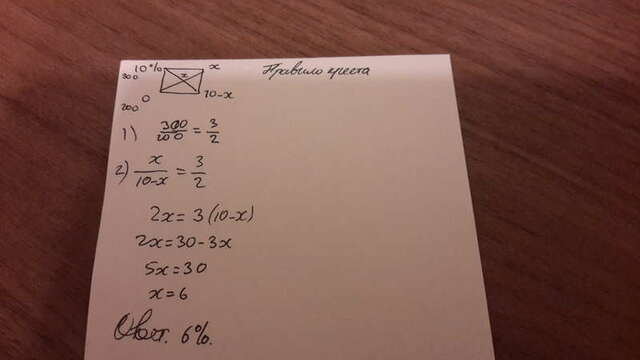 Правило креста
10% x
300 x
0 10-x
200
1) 300/200 = 3/2
2) x/10-x = 3/2
2x = 3(10-x)
2x = 30-3x
5x = 30
x = 6
Ответ. 6%.